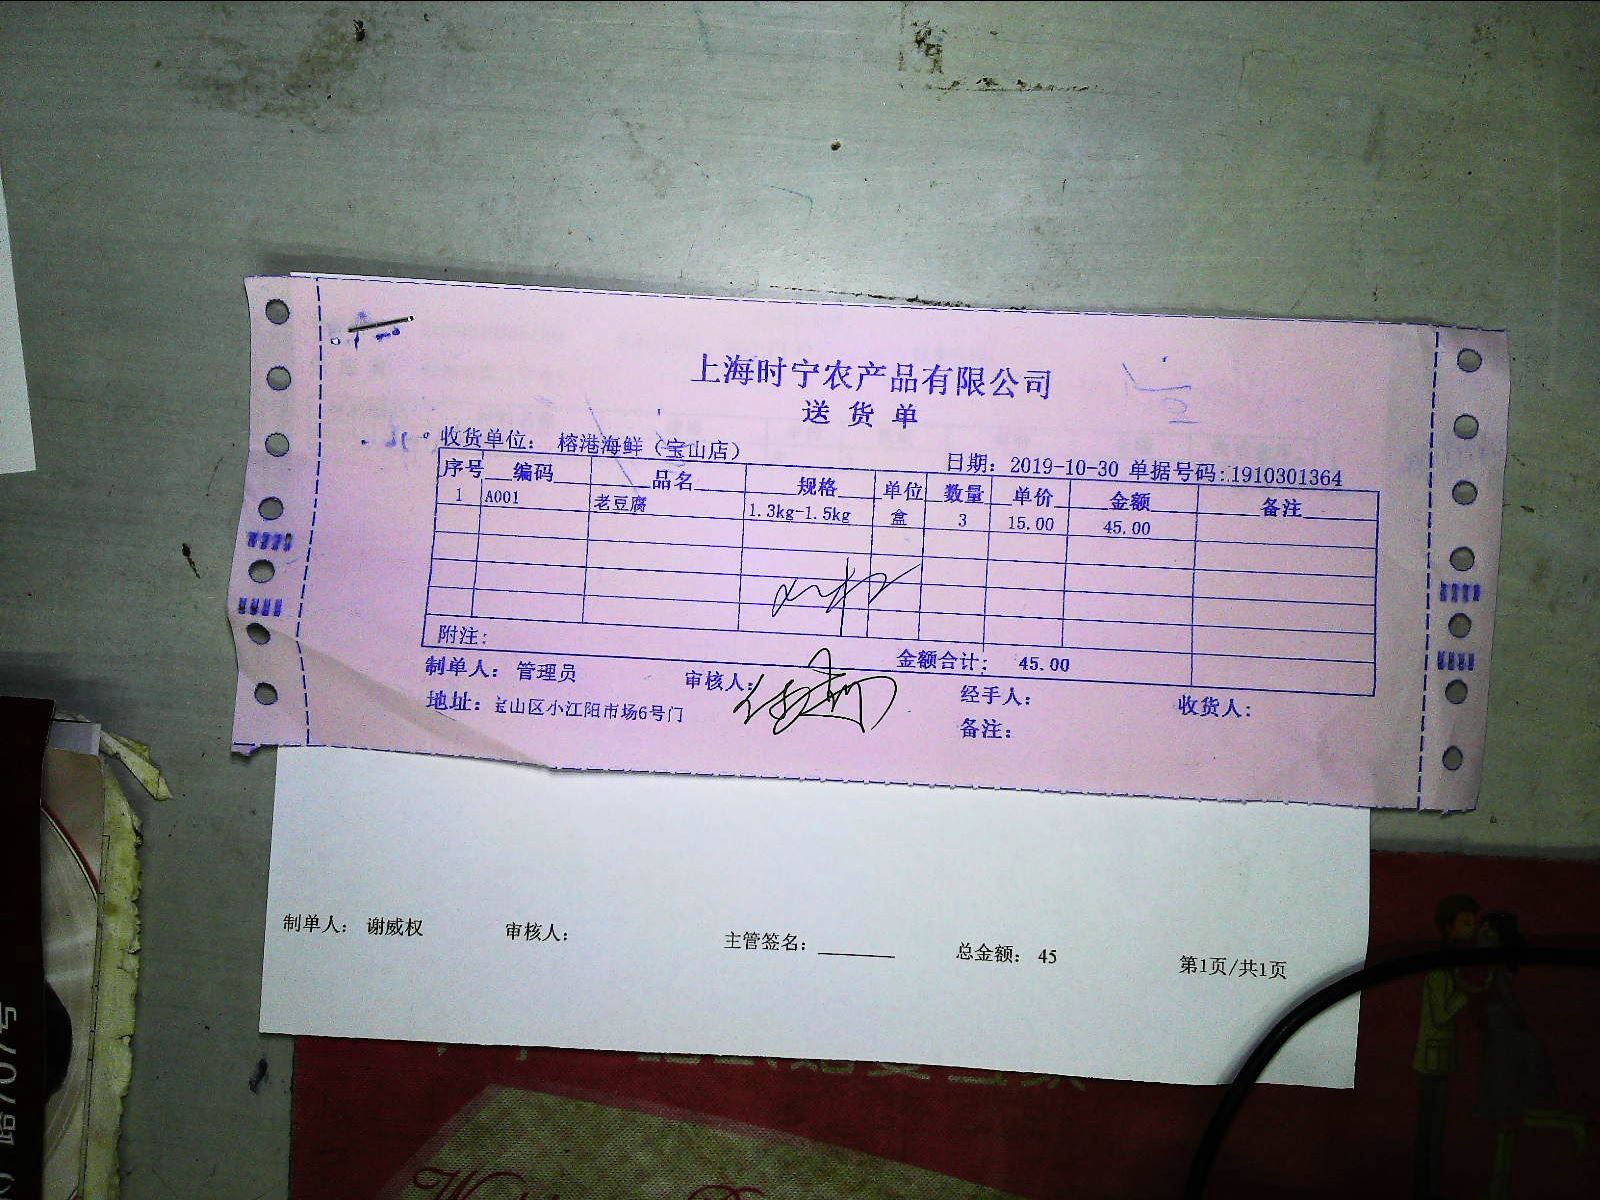 上海时宁农产品有限公司
送 货 单
收货单位: 榕港海鲜(宝山店) 日期: 2019-10-30 单据号码:1910301364
序号 编码 品名 规格 单位 数量 单价 金额 备注
1 A001 老豆腐 1.3kg-1.5kg 盒 3 15.00 45.00
附注: 金额合计: 45.00
制单人: 管理员 审核人: 经手人: 收货人:
地址: 宝山区小江阳市场6号门 备注:
制单人: 谢威权 审核人: 主管签名: ______ 总金额: 45 第1页/共1页
路707号